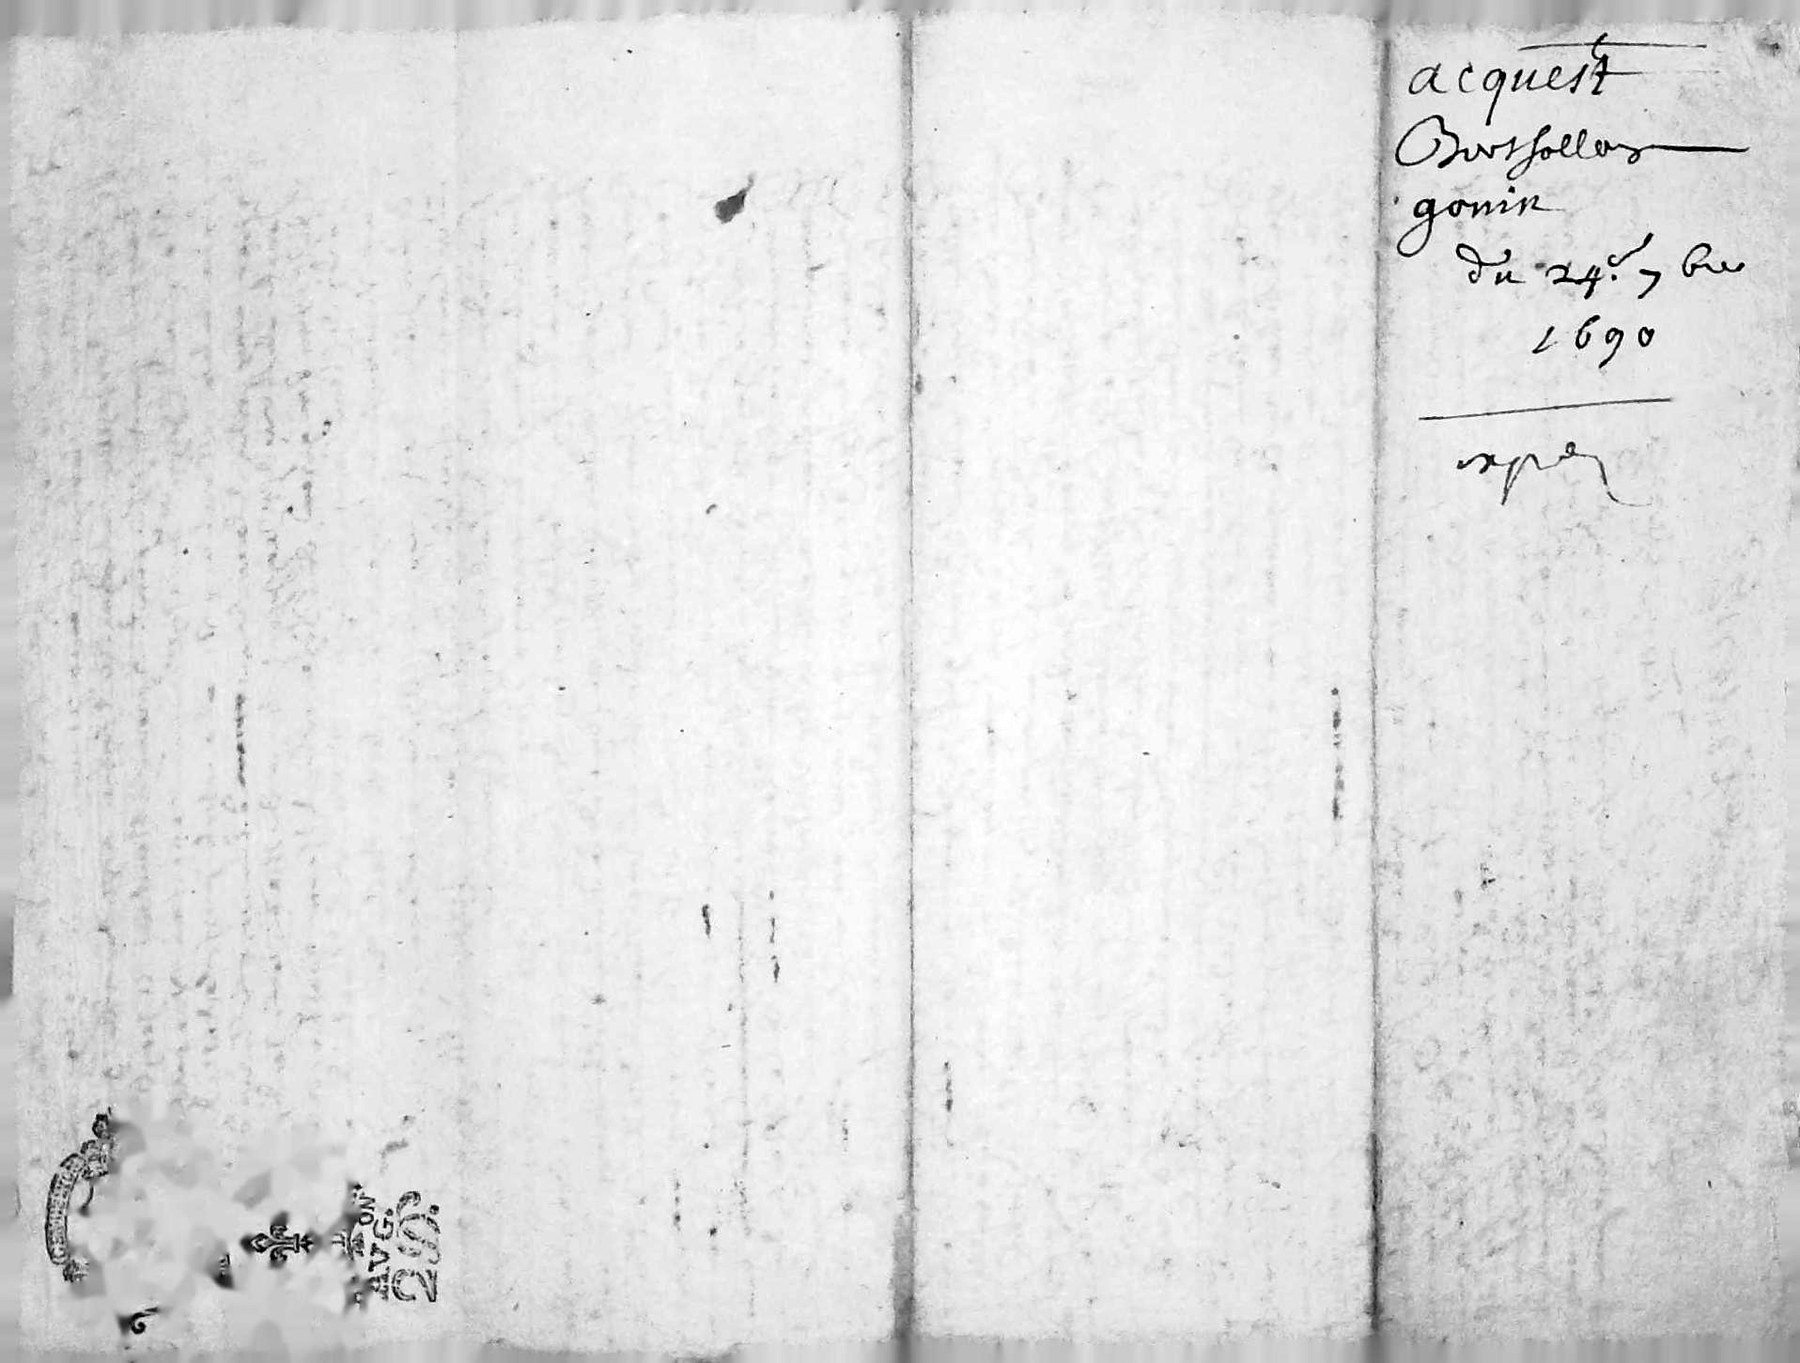 acquest
Berthollay
gonin
du 24.e 7 bre
1690
expé
ON
AVG.
2S.